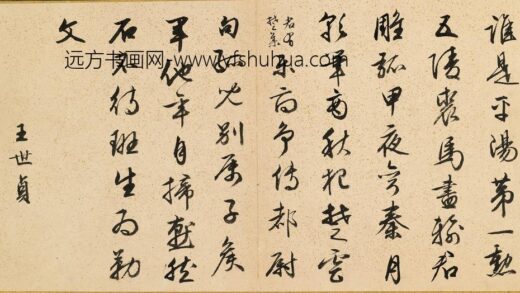 誰是平陽第一勲
五陵裘馬盡輸君
雕弧甲夜穿秦月
彩筆高秋犯楚雲
楚
樂府爭傳都尉
句兒別屬子侯
軍他年自掃燕然
石不待班生為勒
文
王世貞
远方书画网 www.yfshuhua.com